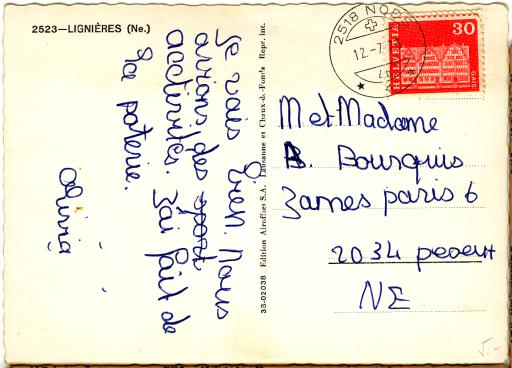 2523—LIGNIÈRES (Ne.)
Je vais bien. Nous
avions des sport
activités. J'ai fait de
la poterie.
33-02038 Edition Alroffset S.A. Lausanne et Chaux-d.-Fonds Repr. int.
2518 NODS
12.-7.
HELVETIA
30
GAIS
M et Madame
B. Bourquis
James paris 6
2034 peseux
NE